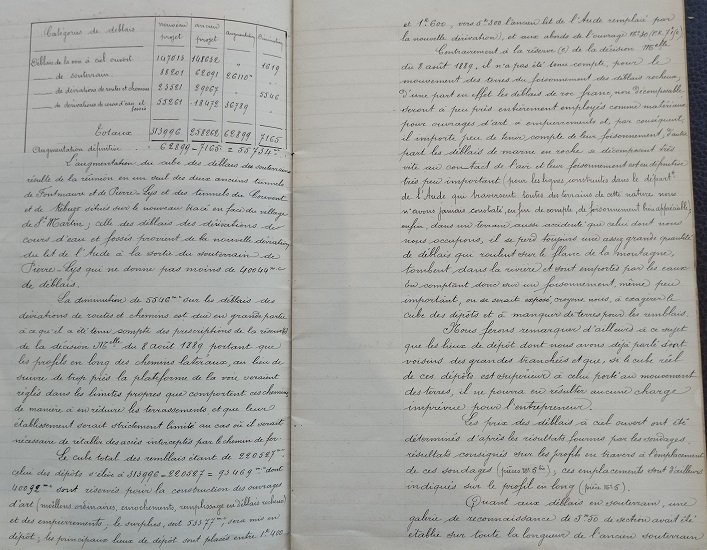 Catégories de déblais | nouveau projet | ancien projet | augmentation | diminution
Déblais de la voie à ciel ouvert 147013 148632 " 1619
___ de souterrain 88201 62091 26110 "
___ de dérivations de routes et chemins 23521 29067 " 5546
___ de dérivations de cours d'eau et fossés 55261 18472 36789 "
Totaux 313996 258262 62899 7165
Augmentation définitive . 62899 — 7165 = 55734
L'augmentation du cube des déblais des souterrains
résulte de la réunion en un seul des deux anciens tunnels
de Fontmaure et de Pierre-Lys et des tunnels du Couvent
et de situés sur le nouveau tracé en face du village
de St Martin ; celle des déblais des dérivations de
cours d'eau et fossés provient de la nouvelle dérivation
du lit de l'Aude à la sortie du souterrain de
Pierre-Lys qui ne donne pas moins de 40040 m.c.
de déblais.
La diminution de 5546 m.c sur les déblais des
dérivations de routes et chemins est due en grande partie
à ce qu'il a été tenu compte des prescriptions de la réserve
de la décision Mlle du 8 août 1889 portant que
les profils en long des chemins latéraux, au lieu de
suivre de trop près la plateforme de la voie seraient
réglés dans les limites propres que comportent ces chemins
de manière à en réduire les terrassements et que leur
établissement serait strictement limité au cas où il serait
nécessaire de rétablir des accès interceptés par le chemin de fer.
Le cube total des remblais étant de 220527 m.c
celui des dépôts s'élève à 313996 — 220527 = 93469 m.c dont
sont réservés pour la construction des ouvrages
d'art (moellons ordinaires, enrochements, remplissage en déblais rocheux)
et des empierrements ; le surplus, soit 53377 m.c, sera mis en
dépôt ; les principaux lieux de dépôt sont placés entre 1k400
et 1k600, vers 5k300 l'ancien lit de l'Aude remplacé par
la nouvelle dérivation), et aux abords de l'ouvrage
Contrairement à la réserve (e) de la décision Mlle
du 8 août 1889, il n'a pas été tenu compte, pour le
mouvement des terres du foisonnement des déblais rocheux,
d'une part en effet les déblais de roc franc, non décomposable
seront à peu près entièrement employés comme matériaux
pour ouvrages d'art & empierrements et, par conséquent,
il importe peu de tenir compte de leur foisonnement, d'autre
part les déblais de marne en roche se décomposent très
vite au contact de l'air et leur foisonnement est en définitive
très peu important (pour les lignes construites dans le départt
de l'Aude que traversent toutes du terrains de cette nature nous
n'avons jamais constaté, en fin de compte, de foisonnement bien appréciable) ;
enfin, dans un terrain aussi accidenté que celui dont nous
nous occupons, il se perd toujours une assez grande quantité
de déblais qui roulent sur le flanc de la montagne,
tombent dans la rivière et sont emportés par les eaux
en comptant donc sur un foisonnement, même peu
important, on se serait exposé, croyons nous, à exagérer le
cube des dépôts et à manquer de terres pour les remblais.
Nous ferons remarquer d'ailleurs à ce sujet
que les lieux de dépôt dont nous avons déjà parlé sont
voisins des grandes tranchées et que, si le cube réel
de ces dépôts est supérieur à celui porté au mouvement
des terres, il ne pourra en résulter aucune charge
imprévue pour l'entrepreneur.
Les prix des déblais à ciel ouvert ont été
déterminés d'après les résultats fournis par les sondages,
résultats consignés sur les profils en travers à l'emplacement
de ces sondages ; ces emplacements sont d'ailleurs
indiqués sur le profil en long (pièce No 5).
Quant aux déblais en souterrain, une
galerie de reconnaissance de de section avait été
établie sur toute la longueur de l'ancien souterrain